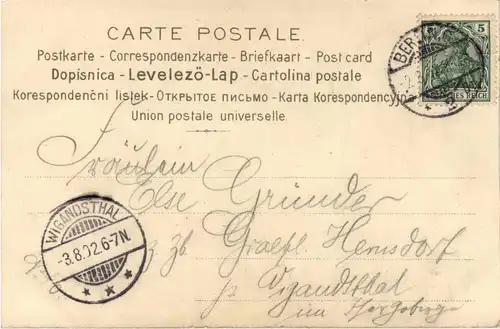 CARTE POSTALE.
Postkarte - Correspondenzkarte - Briefkaart - Post card
Dopisnica - Levelező-Lap - Cartolina postale
Korespondenční listek - Открытое письмо - Karta Korespondencyjna
Union postale universelle.
5
BER
REICH
Fräulein
Else Gründer
z. Zt. Hernsdorf
Wigandsthal
im Isergebirge
WIGANDSTHAL
-3.8.02.6-7N.